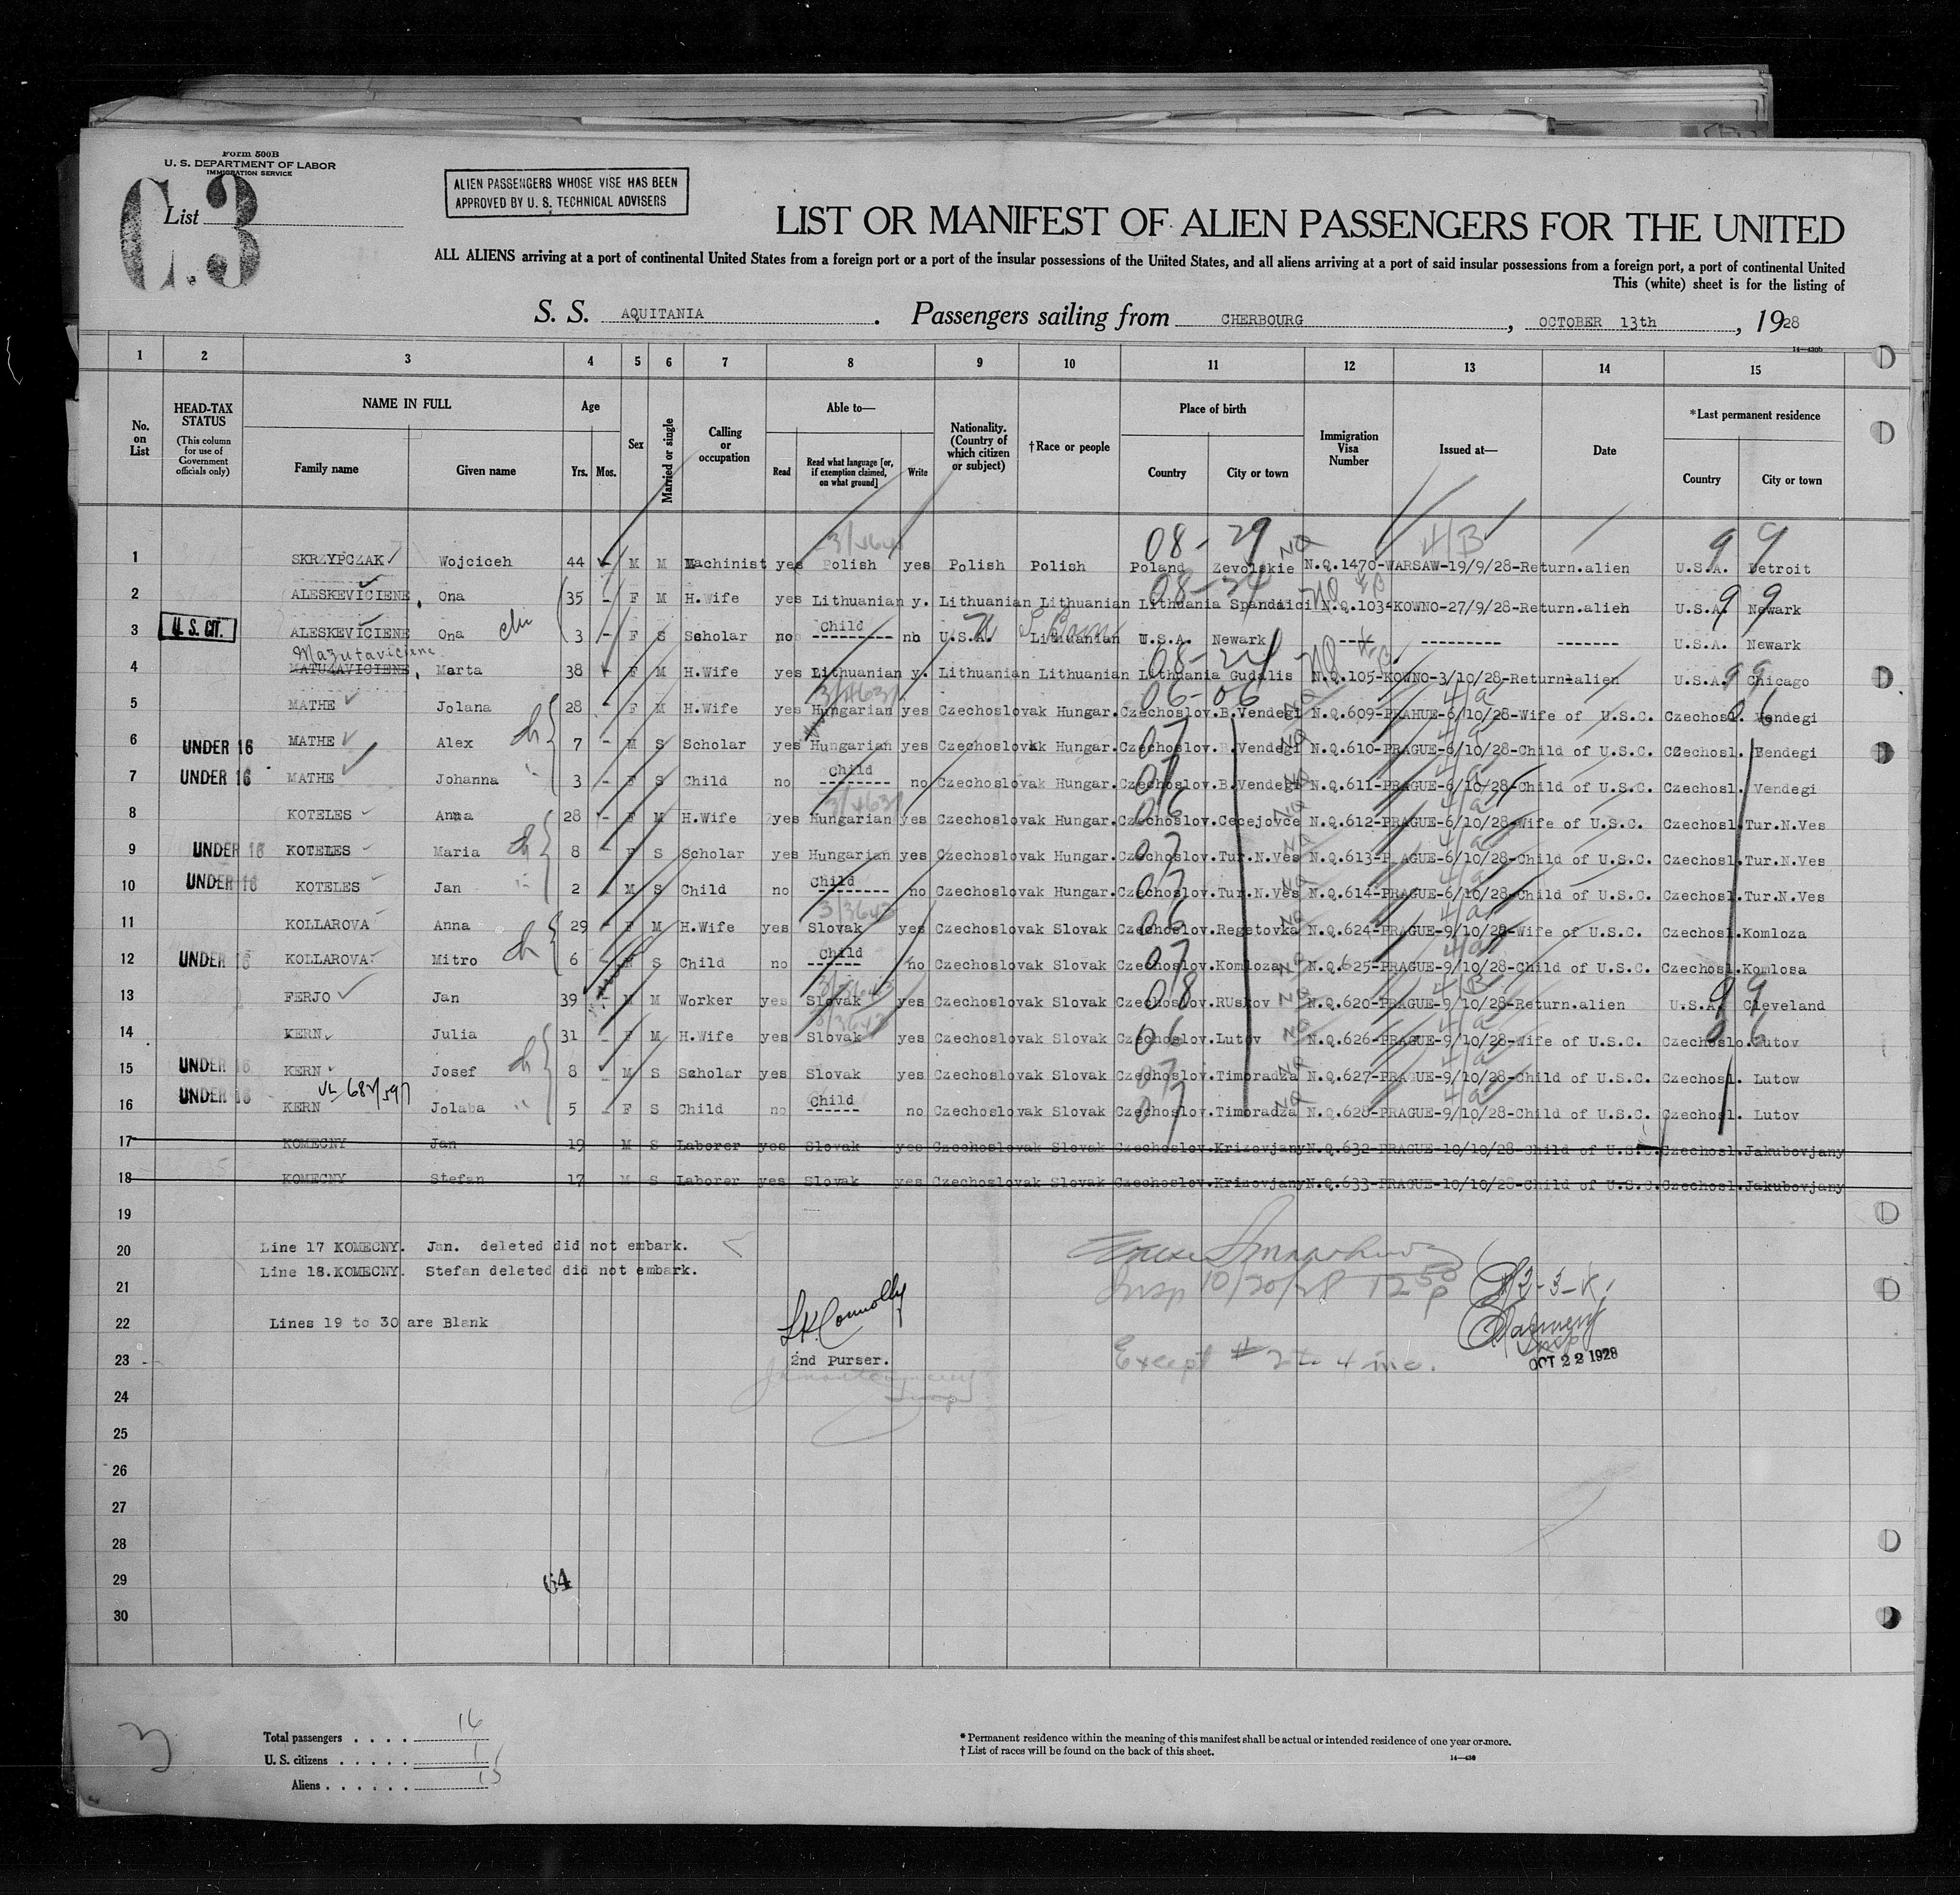 Form 500B
U. S. DEPARTMENT OF LABOR
IMMIGRATION SERVICE
List
C.3
ALIEN PASSENGERS WHOSE VISE HAS BEEN
APPROVED BY U. S. TECHNICAL ADVISERS
LIST OR MANIFEST OF ALIEN PASSENGERS FOR THE UNITED
ALL ALIENS arriving at a port of continental United States from a foreign port or a port of the insular possessions of the United States, and all aliens arriving at a port of said insular possessions from a foreign port, a port of continental United
This (white) sheet is for the listing of
S. S. AQUITANIA . Passengers sailing from CHERBOURG , OCTOBER 13th , 1928
14—430b
1 2 3 4 5 6 7 8 9 10 11 12 13 14 15
No. on List
HEAD-TAX STATUS
(This column for use of Government officials only)
NAME IN FULL
Family name Given name
Age
Yrs. Mos.
Sex
Married or single
Calling or occupation
Able to—
Read Read what language [or, if exemption claimed, on what ground] Write
Nationality. (Country of which citizen or subject)
†Race or people
Place of birth
Country City or town
Immigration Visa Number
Issued at—
Date
*Last permanent residence
Country City or town
08-29 NQ 4/B 9 9
1 SKRZYPCZAK Wojciceh 44 - M M Machinist yes Polish yes Polish Polish Poland Zevolskie N.Q.1470-WARSAW-19/9/28-Return.alien U.S.A. Detroit
2 ALESKEVICIENE, Ona 35 - F M H.Wife yes Lithuanian y. Lithuanian Lithuanian Lithuania Spandiici N.Q.103-KOWNO-27/9/28-Return.alieh U.S.A. Newark
U.S. CIT.
3 ALESKEVICIENE Ona ch 3 - F S Scholar no Child --------- no U.S.A. Lithuanian U.S.A. Newark ---- ---------- ------- U.S.A. Newark
Mazutaviciene
4 MATUZAVICIENE, Marta 38 - F M H.Wife yes Lithuanian y. Lithuanian Lithuanian Lithuania Gudalis N.Q.105-KOWNO-3/10/28-Return-alien U.S.A. Chicago
5 MATHE Jolana 28 - F M H.Wife yes Hungarian yes Czechoslovak Hungar.Czechoslov.B.Vendegi N.Q.609-PRAHUE-6/10/28-Wife of U.S.C. Czechosl. Vendegi
6 UNDER 16 MATHE Alex 7 - M S Scholar yes Hungarian yes Czechoslovkk Hungar.Czechoslov.B.Vendegi N.Q.610-PRAGUE-6/10/28-Child of U.S.C. Czechosl. Fendegi
7 UNDER 16 MATHE Johanna 3 - F S Child no Child -------- no Czechoslovak Hungar.Czechoslov.B.Vendegi N.Q.611-PRAGUE-6/10/28-Child of U.S.C. Czechosl. Vendegi
8 KOTELES Anna 28 - F M H.Wife yes Hungarian yes Czechoslovak Hungar.Czechoslov.Cecejovce N.Q.612-PRAGUE-6/10/28-Wife of U.S.C. Czechosl.Tur.N.Ves
9 UNDER 16 KOTELES Maria 8 - F S Scholar yes Hungarian yes Czechoslovak Hungar.Czechoslov.Tur.N.Ves N.Q.613-PRAGUE-6/10/28-Child of U.S.C. Czechosl.Tur.N.Ves
10 UNDER 16 KOTELES Jan 2 - M S Child no Child -------- no Czechoslovak Hungar.Czechoslov.Tur.N.Ves N.Q.614-PRAGUE-6/10/28-Child of U.S.C. Czechosl.Tur.N.Ves
11 KOLLAROVA Anna 29 - F M H.Wife yes Slovak yes Czechoslovak Slovak Czechoslov.Regetovka N.Q.624-PRAGUE-9/10/28-Wife of U.S.C. Czechosl.Komloza
12 UNDER 16 KOLLAROVA Mitro 6 - S Child no Child ------ no Czechoslovak Slovak Czechoslov.Komloza N.Q.625-PRAGUE-9/10/28-Child of U.S.C. Czechosl.Komlosa
13 FERJO Jan 39 - M M Worker yes Slovak yes Czechoslovak Slovak Czechoslov.RUskov N.Q.620-PRAGUE-9/10/28-Return.alien U.S.A. Cleveland
14 KERN Julia 31 - F M H.Wife yes Slovak yes Czechoslovak Slovak Czechoslov.Lutov N.Q.626-PRAGUE-9/10/28-Wife of U.S.C. Czechoslo.Lutov
15 UNDER 16 KERN Josef 8 - M S Scholar yes Slovak yes Czechoslovak Slovak Czechoslov.Timoradza N.Q.627-PRAGUE-9/10/28-Child of U.S.C. Czechosl. Lutow
16 UNDER 16 KERN Jolaba 5 - F S Child no Child ------ no Czechoslovak Slovak Czechoslov.Timoradza N.Q.628-PRAGUE-9/10/28-Child of U.S.C. Czechosl. Lutov
17 KOMECNY Jan 19 M S Laborer yes Slovak yes Czechoslovak Slovak Czechoslov.Krizovjany N.Q.632-PRAGUE-10/10/28-Child of U.S.C.Czechosl.Jakubovjany
18 KOMECNY Stefan 17 M S Laborer yes Slovak yes Czechoslovak Slovak Czechoslov.Krizovjany N.Q.633-PRAGUE-10/10/28-Child of U.S.C.Czechosl.Jakubovjany
19
20 Line 17 KOMECNY. Jan. deleted did not embark.
Line 18.KOMECNY. Stefan deleted did not embark.
21 Insp 10/20/28 12 50 P
22 Lines 19 to 30 are Blank
L.K. Connolly
23 2nd Purser.
Except # 2 to 4 inc.
OCT 22 1928
24
25
26
27
28
29 64
30
3
Total passengers . . . . 16
U. S. citizens . . . . . 1
Aliens . . . . . . 15
* Permanent residence within the meaning of this manifest shall be actual or intended residence of one year or more.
† List of races will be found on the back of this sheet.
14—430